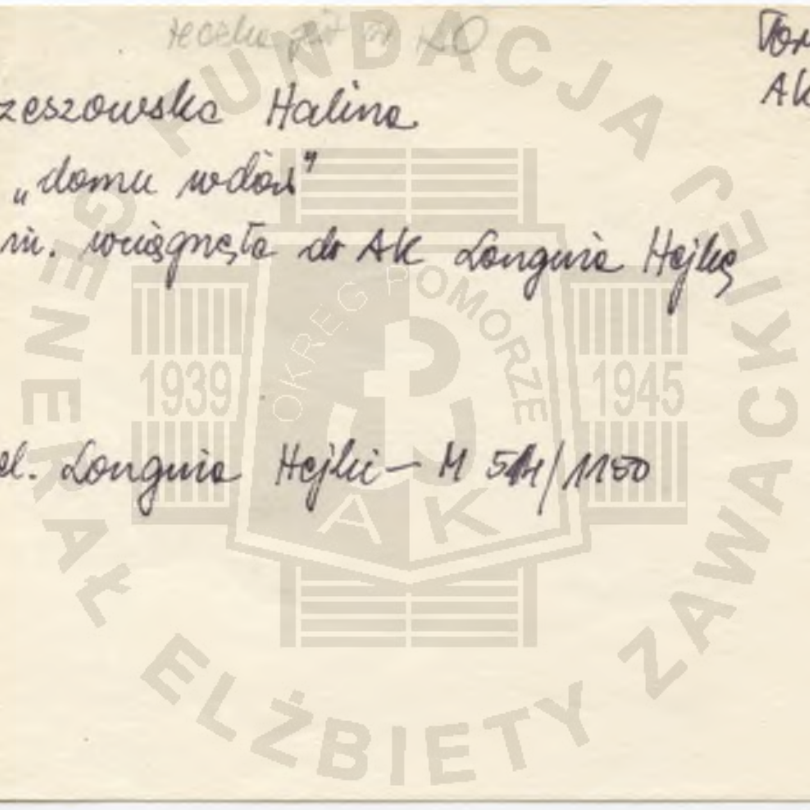 teczka jest w KO
Tor
AK
zeszowska Halina
„domu wdów"
m. wciągnęła do AK Longina Hejkę
el. Longina Hejki – M 514/1150
FUNDACJA GENERAŁ ELŻBIETY ZAWACKIEJ
OKRĘG POMORZE
1939
1945
AK